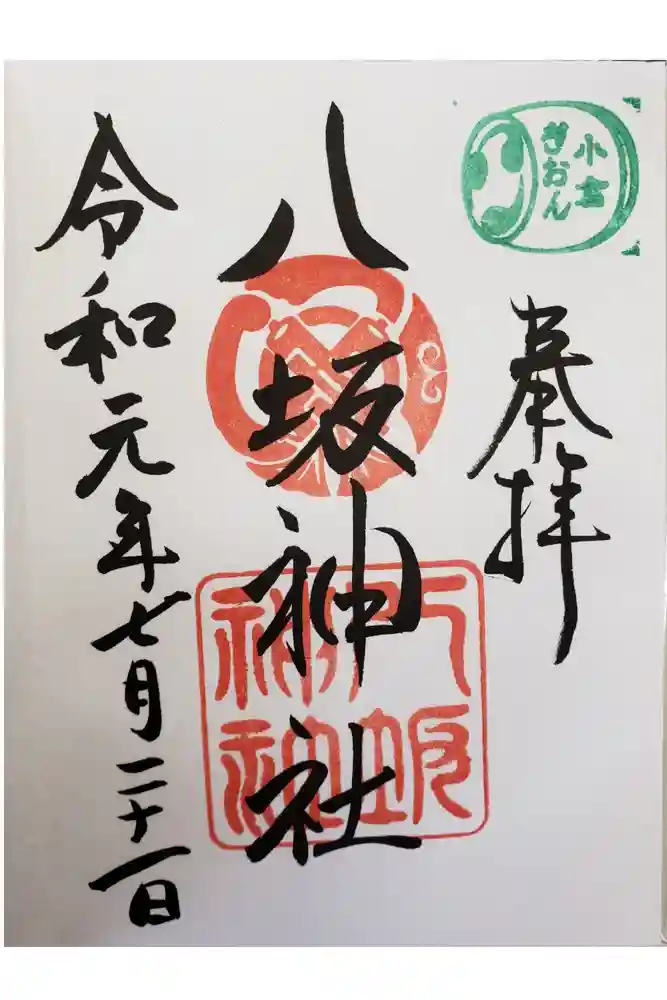 小倉
ぎおん
奉拝
八坂神社
八坂
神社
令和元年七月二十一日